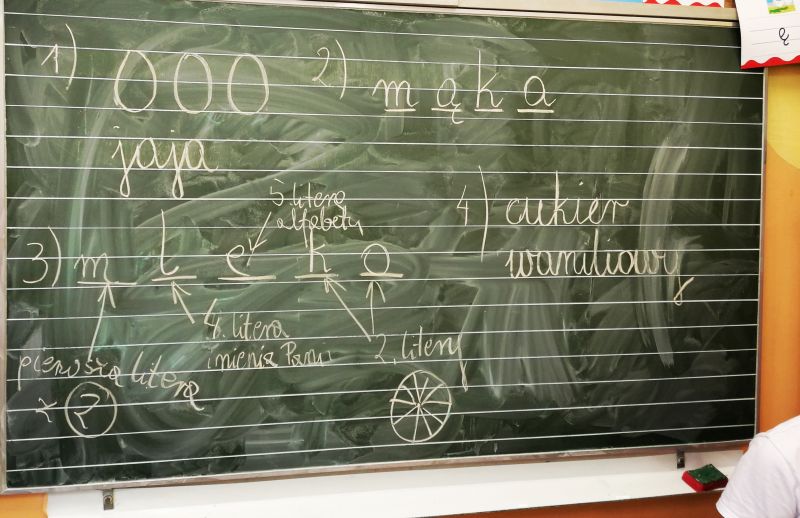 1) 000
jaja
2) m ą k a
3) m l e k o
5. litera
alfabetu
4. litera
imienia Pani
2. litery
pierwszą literą
z 2
4) cukier
waniliowy
ę